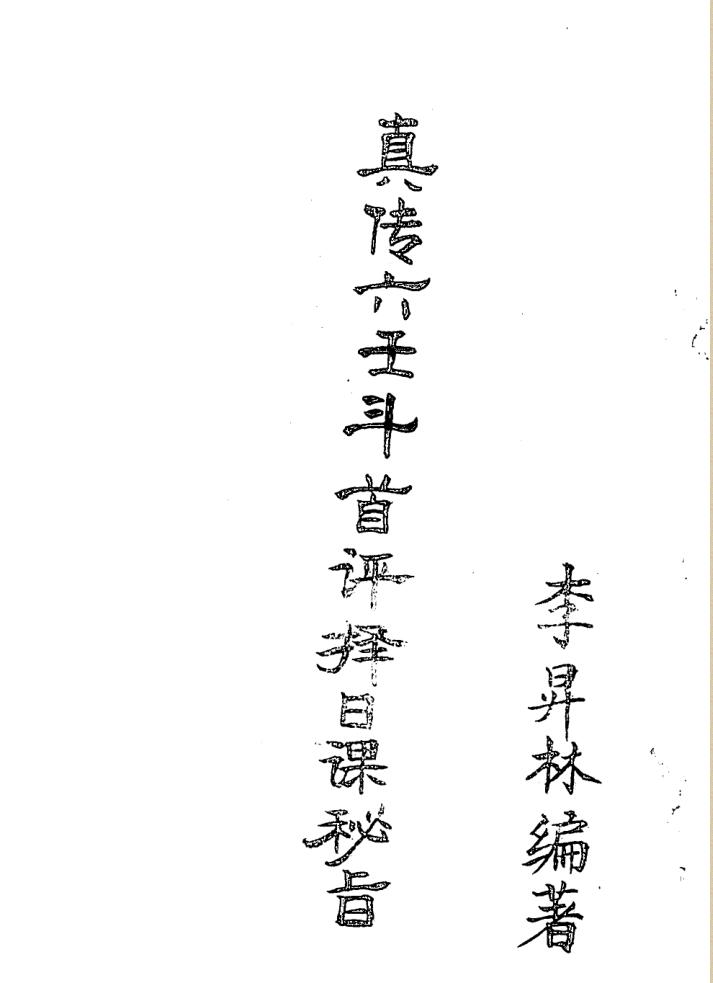 李昇林编著
真传六壬斗首评择日课秘旨